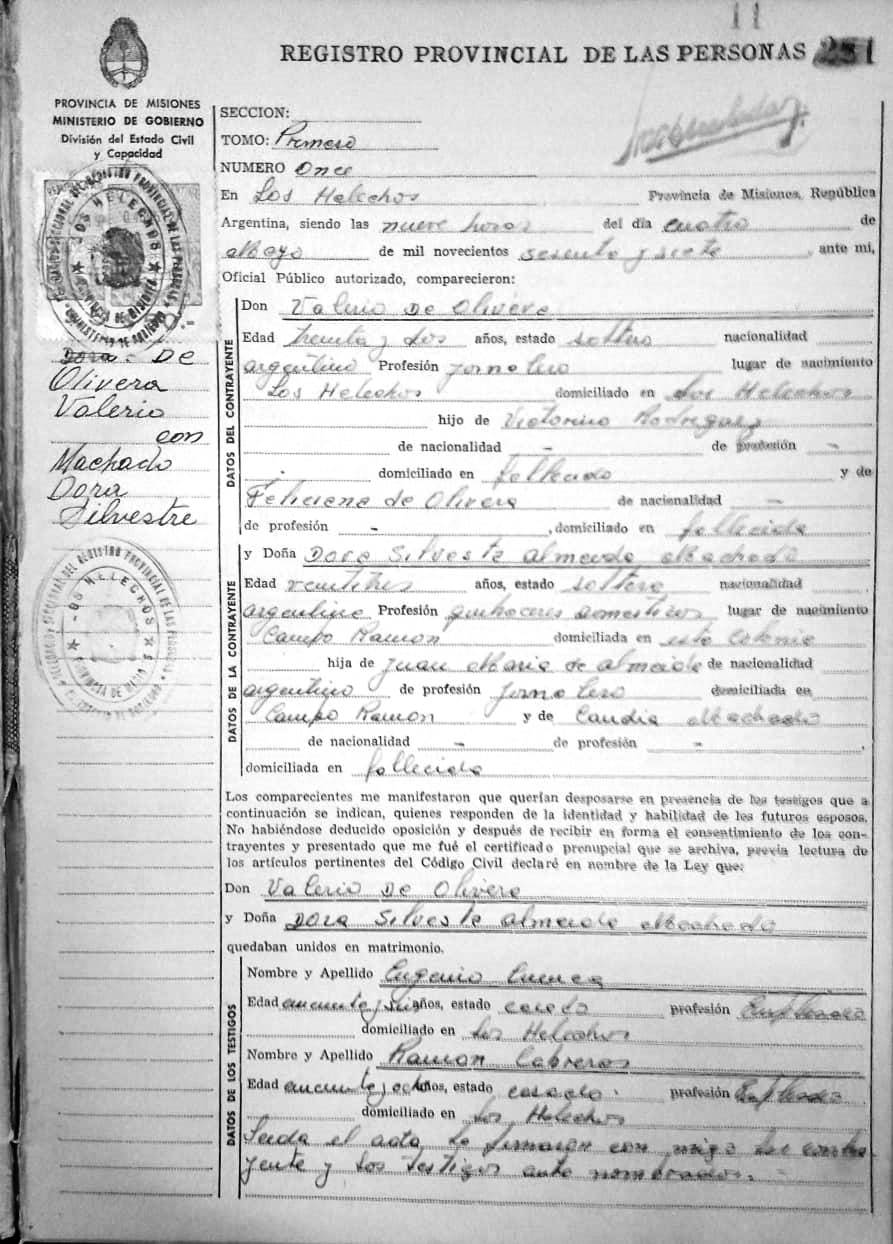 11
REGISTRO PROVINCIAL DE LAS PERSONAS 251
PROVINCIA DE MISIONES
MINISTERIO DE GOBIERNO
División del Estado Civil
y Capacidad
SECCION:
TOMO: Primero
NUMERO Once
En Los Helechos Provincia de Misiones, República
Argentina, siendo las nueve horas del día cuatro de
Mayo de mil novecientos sesenta y siete ante mi,
Oficial Público autorizado, comparecieron:
LOS HELECHOS
Dora - De
Olivera
Valerio
con
Machado
Dora
Silvestre
LOS HELECHOS
DATOS DEL CONTRAYENTE
Don Valerio De Olivera
Edad treinta y dos años, estado soltero nacionalidad
argentino Profesión jornalero lugar de nacimiento
Los Helechos domiciliado en Los Helechos
hijo de Victorino Rodriguez
de nacionalidad - de profesión -
domiciliado en fallecido y de
Feliciana de Olivera de nacionalidad -
de profesión - , domiciliado en fallecida
DATOS DE LA CONTRAYENTE
y Doña Dora Silveste Almeida Machado
Edad veintitres años, estado soltera nacionalidad
argentina Profesión quehaceres domesticos lugar de nacimiento
Campo Ramon domiciliada en esta Colonia
hija de Juan Maria de Almeida de nacionalidad
argentino de profesión jornalero domiciliada en
Campo Ramon y de Candia Machado
de nacionalidad - de profesión - ,
domiciliada en fallecida
Los comparecientes me manifestaron que querían desposarse en presencia de los testigos que a
continuación se indican, quienes responden de la identidad y habilidad de los futuros esposos.
No habiéndose deducido oposición y después de recibir en forma el consentimiento de los con-
trayentes y presentado que me fué el certificado prenupcial que se archiva, previa lectura de
los artículos pertinentes del Código Civil declaré en nombre de la Ley que:
Don Valerio De Olivera
y Doña Dora Silveste Almeida Machado
quedaban unidos en matrimonio.
DATOS DE LOS TESTIGOS
Nombre y Apellido Eugenio Cuenca
Edad cincuenta y seis años, estado casado profesión Empleado
domiciliado en Los Helechos
Nombre y Apellido Ramon Cabreras
Edad cincuenta y ocho años, estado casado profesión Empleado
domiciliado en Los Helechos
Leida el acta la firmaron con migo los contra
yente y los testigos ante nombrados.